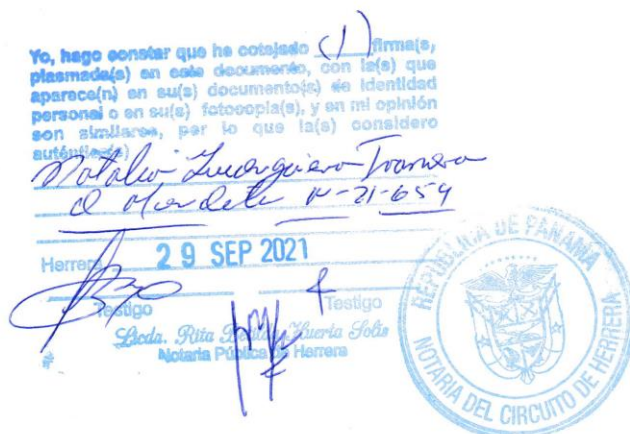 Yo, hago constar que he cotejado (1) firma(s),
plasmada(s) en este documento, con la(s) que
aparece(n) en su(s) documento(s) de identidad
personal o en su(s) fotocopia(s), y en mi opinión
son similares, por lo que la(s) considero
auténtica(s)
Natalia
21-654
Herrera 29 SEP 2021
Testigo Testigo
Licda. Rita Huerta Solis
Notaria Pública de Herrera
REPÚBLICA DE PANAMÁ
NOTARIA DEL CIRCUITO DE HERRERA